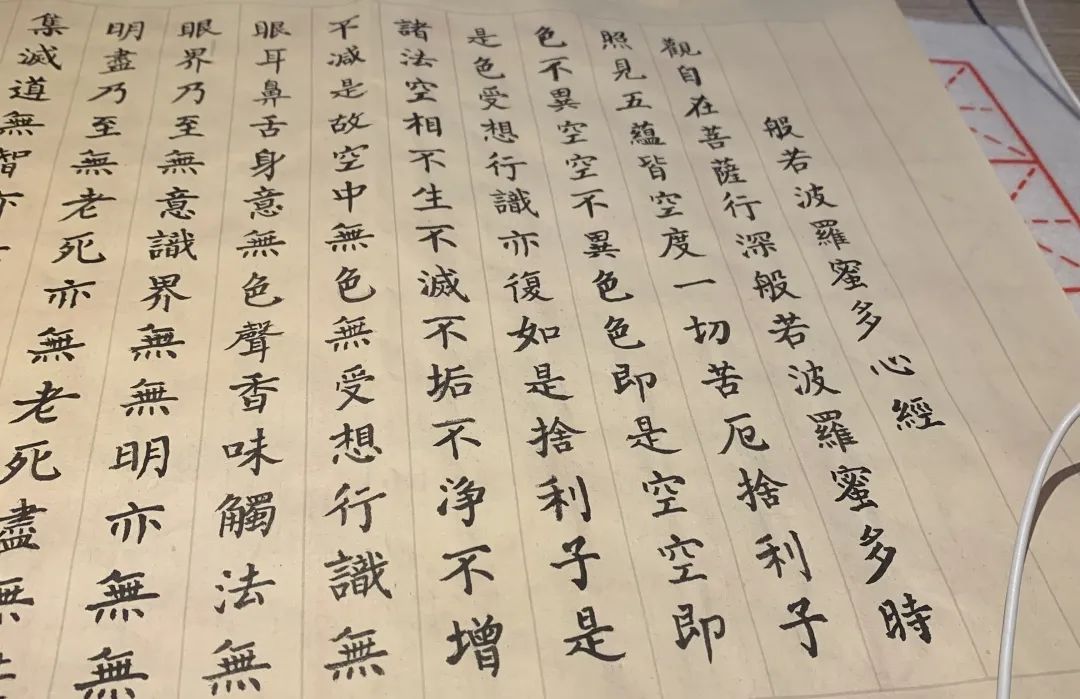 般若波羅蜜多心經
觀自在菩薩行深般若波羅蜜多時
照見五蘊皆空度一切苦厄捨利子
色不異空空不異色色即是空空即
是色受想行識亦復如是捨利子是
諸法空相不生不滅不垢不净不增
不减是故空中無色無受想行識無
眼耳鼻舌身意無色聲香味觸法無
眼界乃至無意識界無無明亦無無
明盡乃至無老死亦無老死盡無
集滅道無智亦